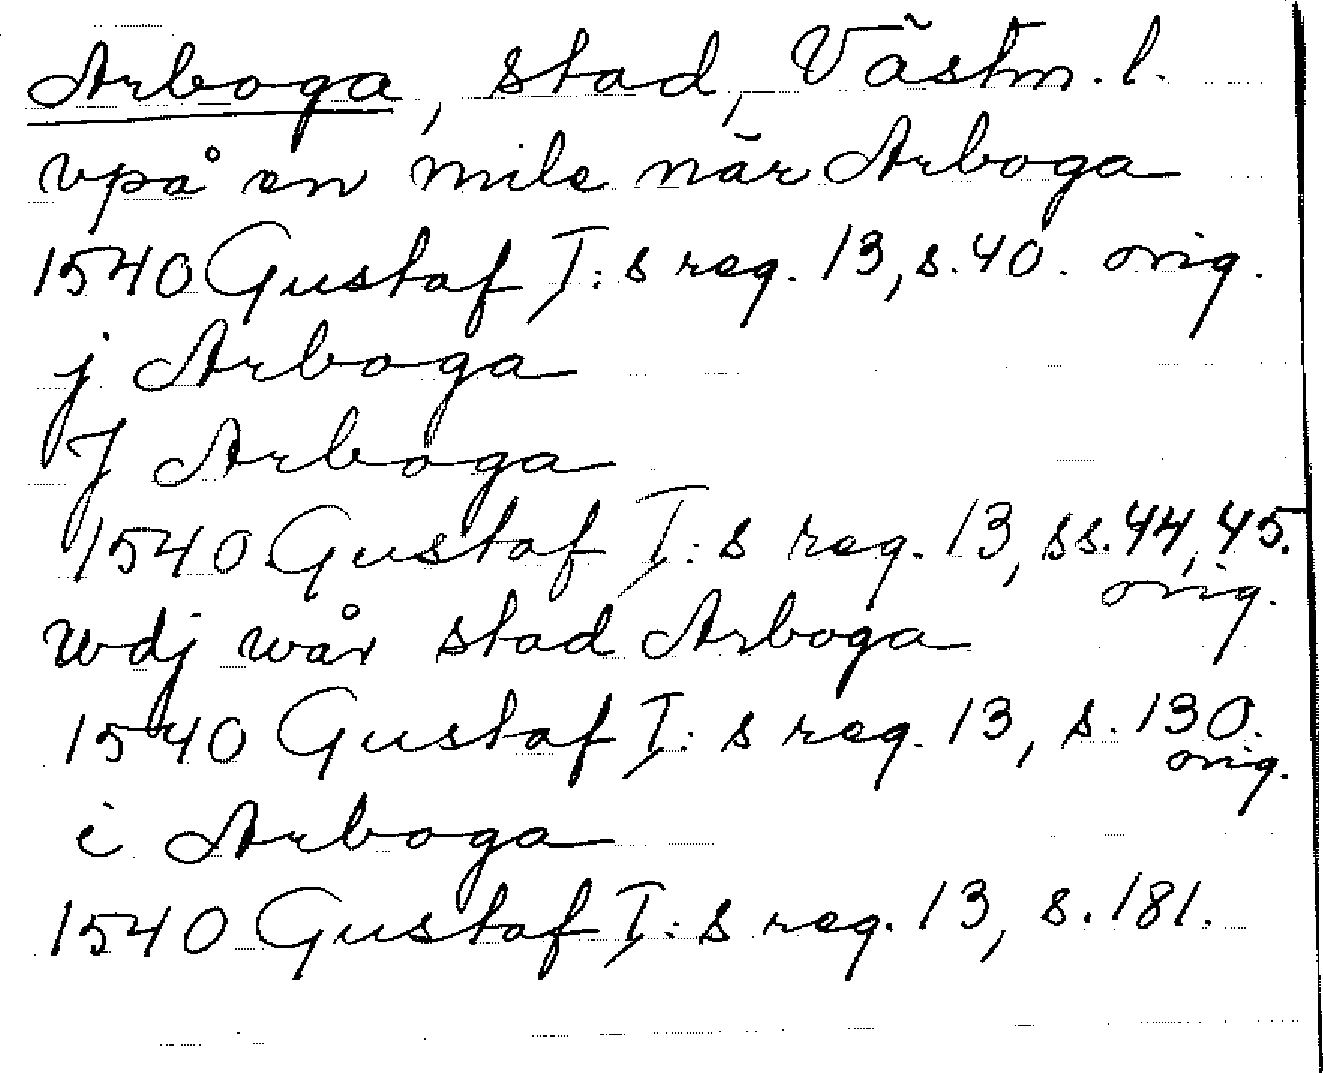 Arboga, stad, Västm. l.
vpå en mile när Arboga
1540 Gustaf I:s reg. 13, s. 40. orig.
j Arboga
J Arboga
1540 Gustaf I:s reg. 13, ss. 44, 45.
orig.
wdj wår stad Arboga
1540 Gustaf I:s reg. 13, s. 130.
orig.
i Arboga
1540 Gustaf I:s reg. 13, s. 181.